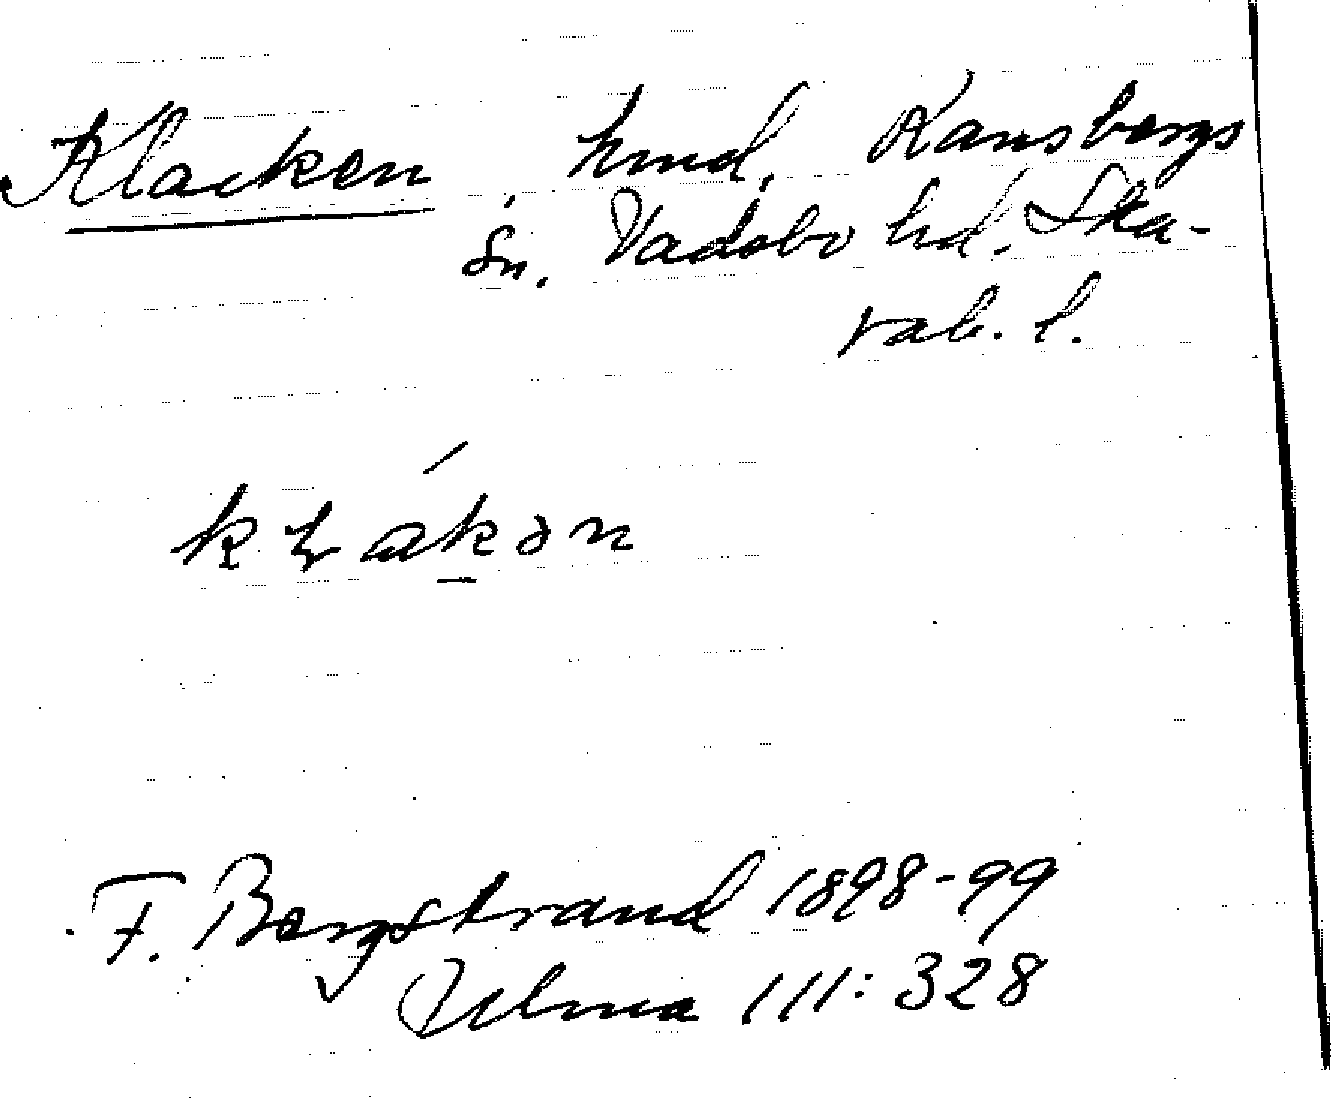 Klacken, hmd, Ransbergs
sn. Vadsbo hd. Ska-
rab. l.
kɫákən
F. Bergstrand 1898-99
Ulma 111:328